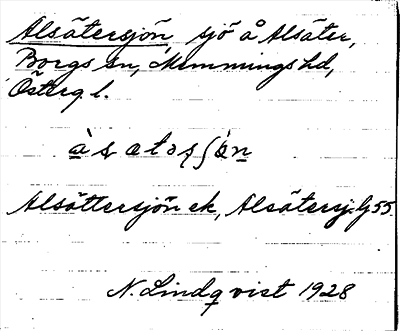 Alsätersjön, sjö å Alsäter,
Borgs sn, Memmings hd,
Österg. l.
Alsättersjön ek, Alsätersj. G 55.
N. Lindqvist 1928